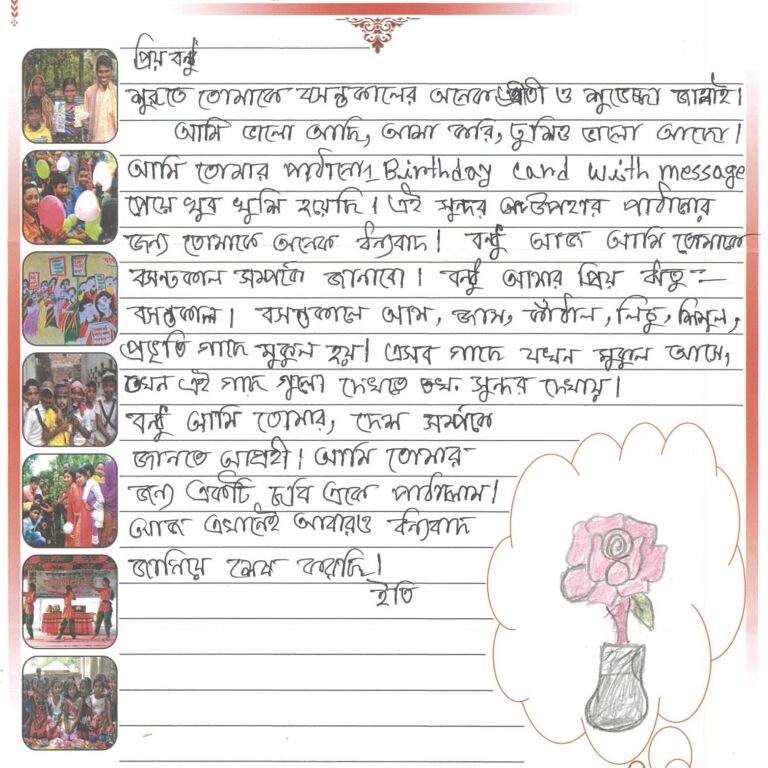 প্রিয় বন্ধু
শুরুতে তোমাকে বসন্তকালের অনেক প্রীতী ও শুভেচ্ছা জানাই।
আমি ভালো আছি, আসা করি, তুমিও ভালো আছো।
আমি তোমার পাঠানো Birthday card with message
পেয়ে খুব খুশি হয়েছি। এই সুন্দর উপহার পাঠানোর
জন্য তোমাকে অনেক ধন্যবাদ। বন্ধু আজ আমি তোমাকে
বসন্তকাল সম্পর্কে জানাবো। বন্ধু আমার প্রিয় ঋতু :-
বসন্তকাল। বসন্তকালে আম, জাম, কাঁঠাল, লিচু, শিমুল,
প্রভৃতি গাছে মুকুল হয়। এসব গাছে যখন মুকুল আসে,
তখন এই গাছ গুলো দেখতে সুন্দর দেখায়।
বন্ধু আমি তোমার, দেশ সর্ম্পকে
জানতে আগ্রহী। আমি তোমার
জন্য একটি ছবি একে পাঠালাম।
আজ এখানেই আবারও ধন্যবাদ
জানিয়ে শেষ করছি।
ইতি